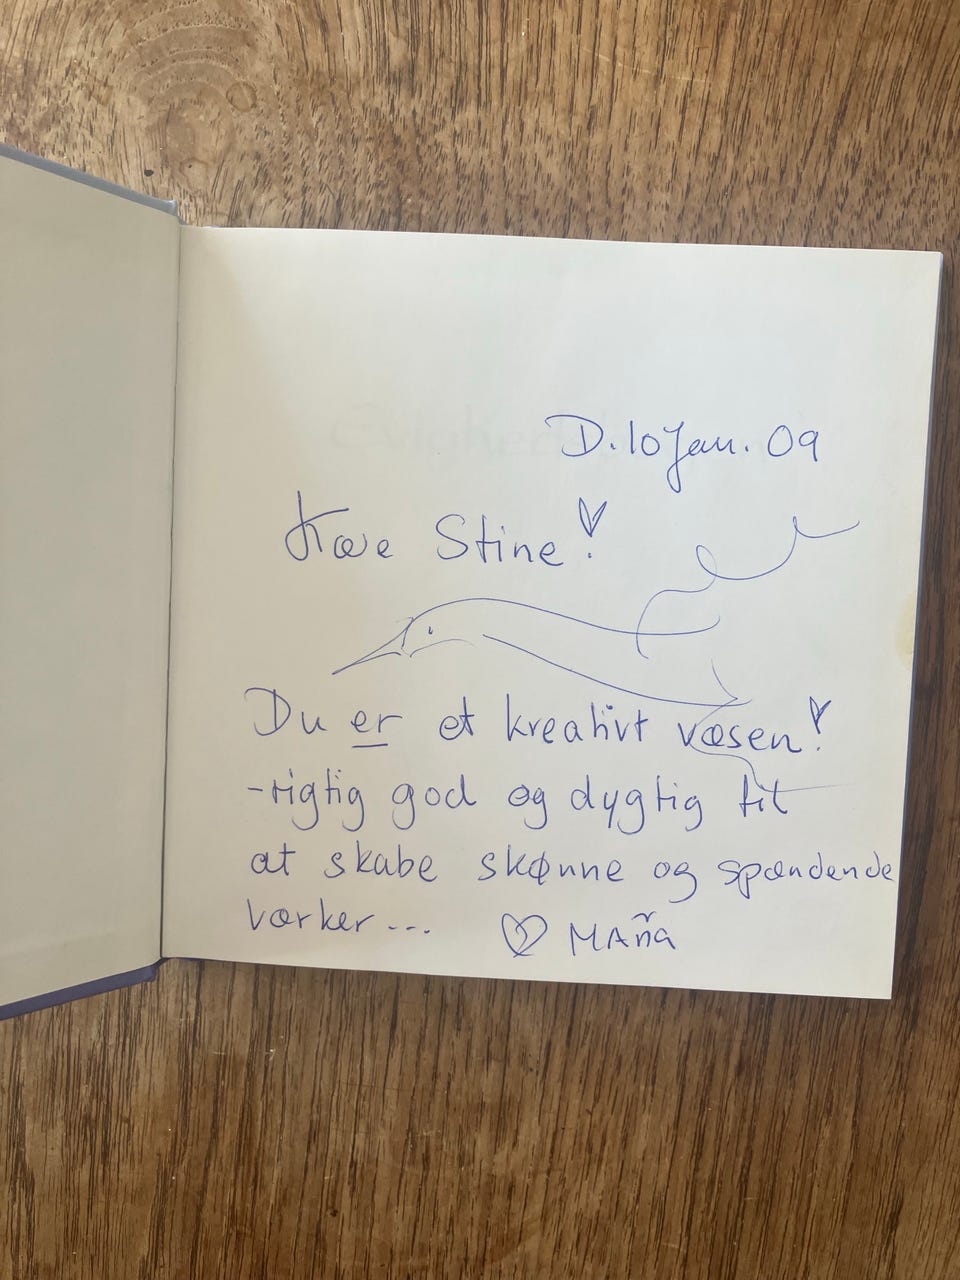 D. 10 Jan. 09
Kære Stine!
Du er et kreativt væsen!
- rigtig god og dygtig til
at skabe skønne og spændende
værker...
MAña